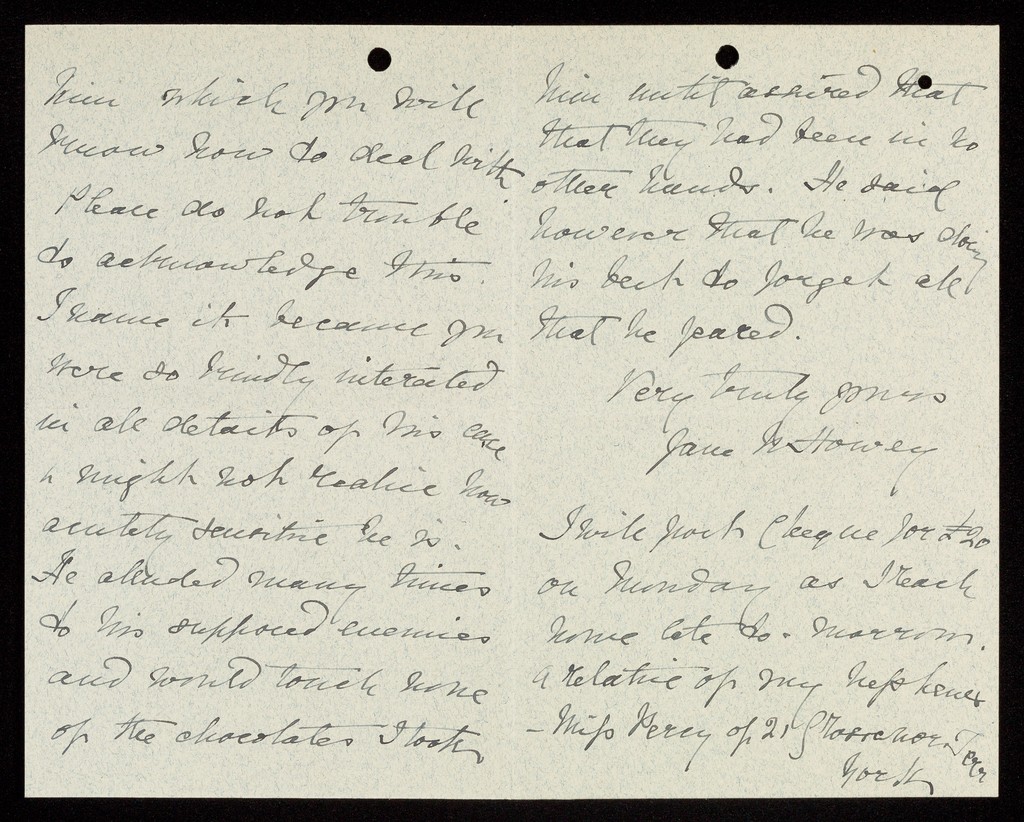 him which you will
know how to deal with
Please do not trouble
to acknowledge this.
I name it because you
were so kindly interested
in all details of his case
& might not realise how
acutely sensitive he is.
He alluded many times
to his supposed enemies
and would touch none
of the chocolates I took
him until assured that
that they had been in no
other hands. He said
however that he was doing
his best to forget all
that he feared.
Very truly yours
Jane N Howey
I will post Cheque for £20
on Monday as I reach
home late to-morrow.
A relative of my nephews
- Miss Percy of 21 Grosvenor Terr
York